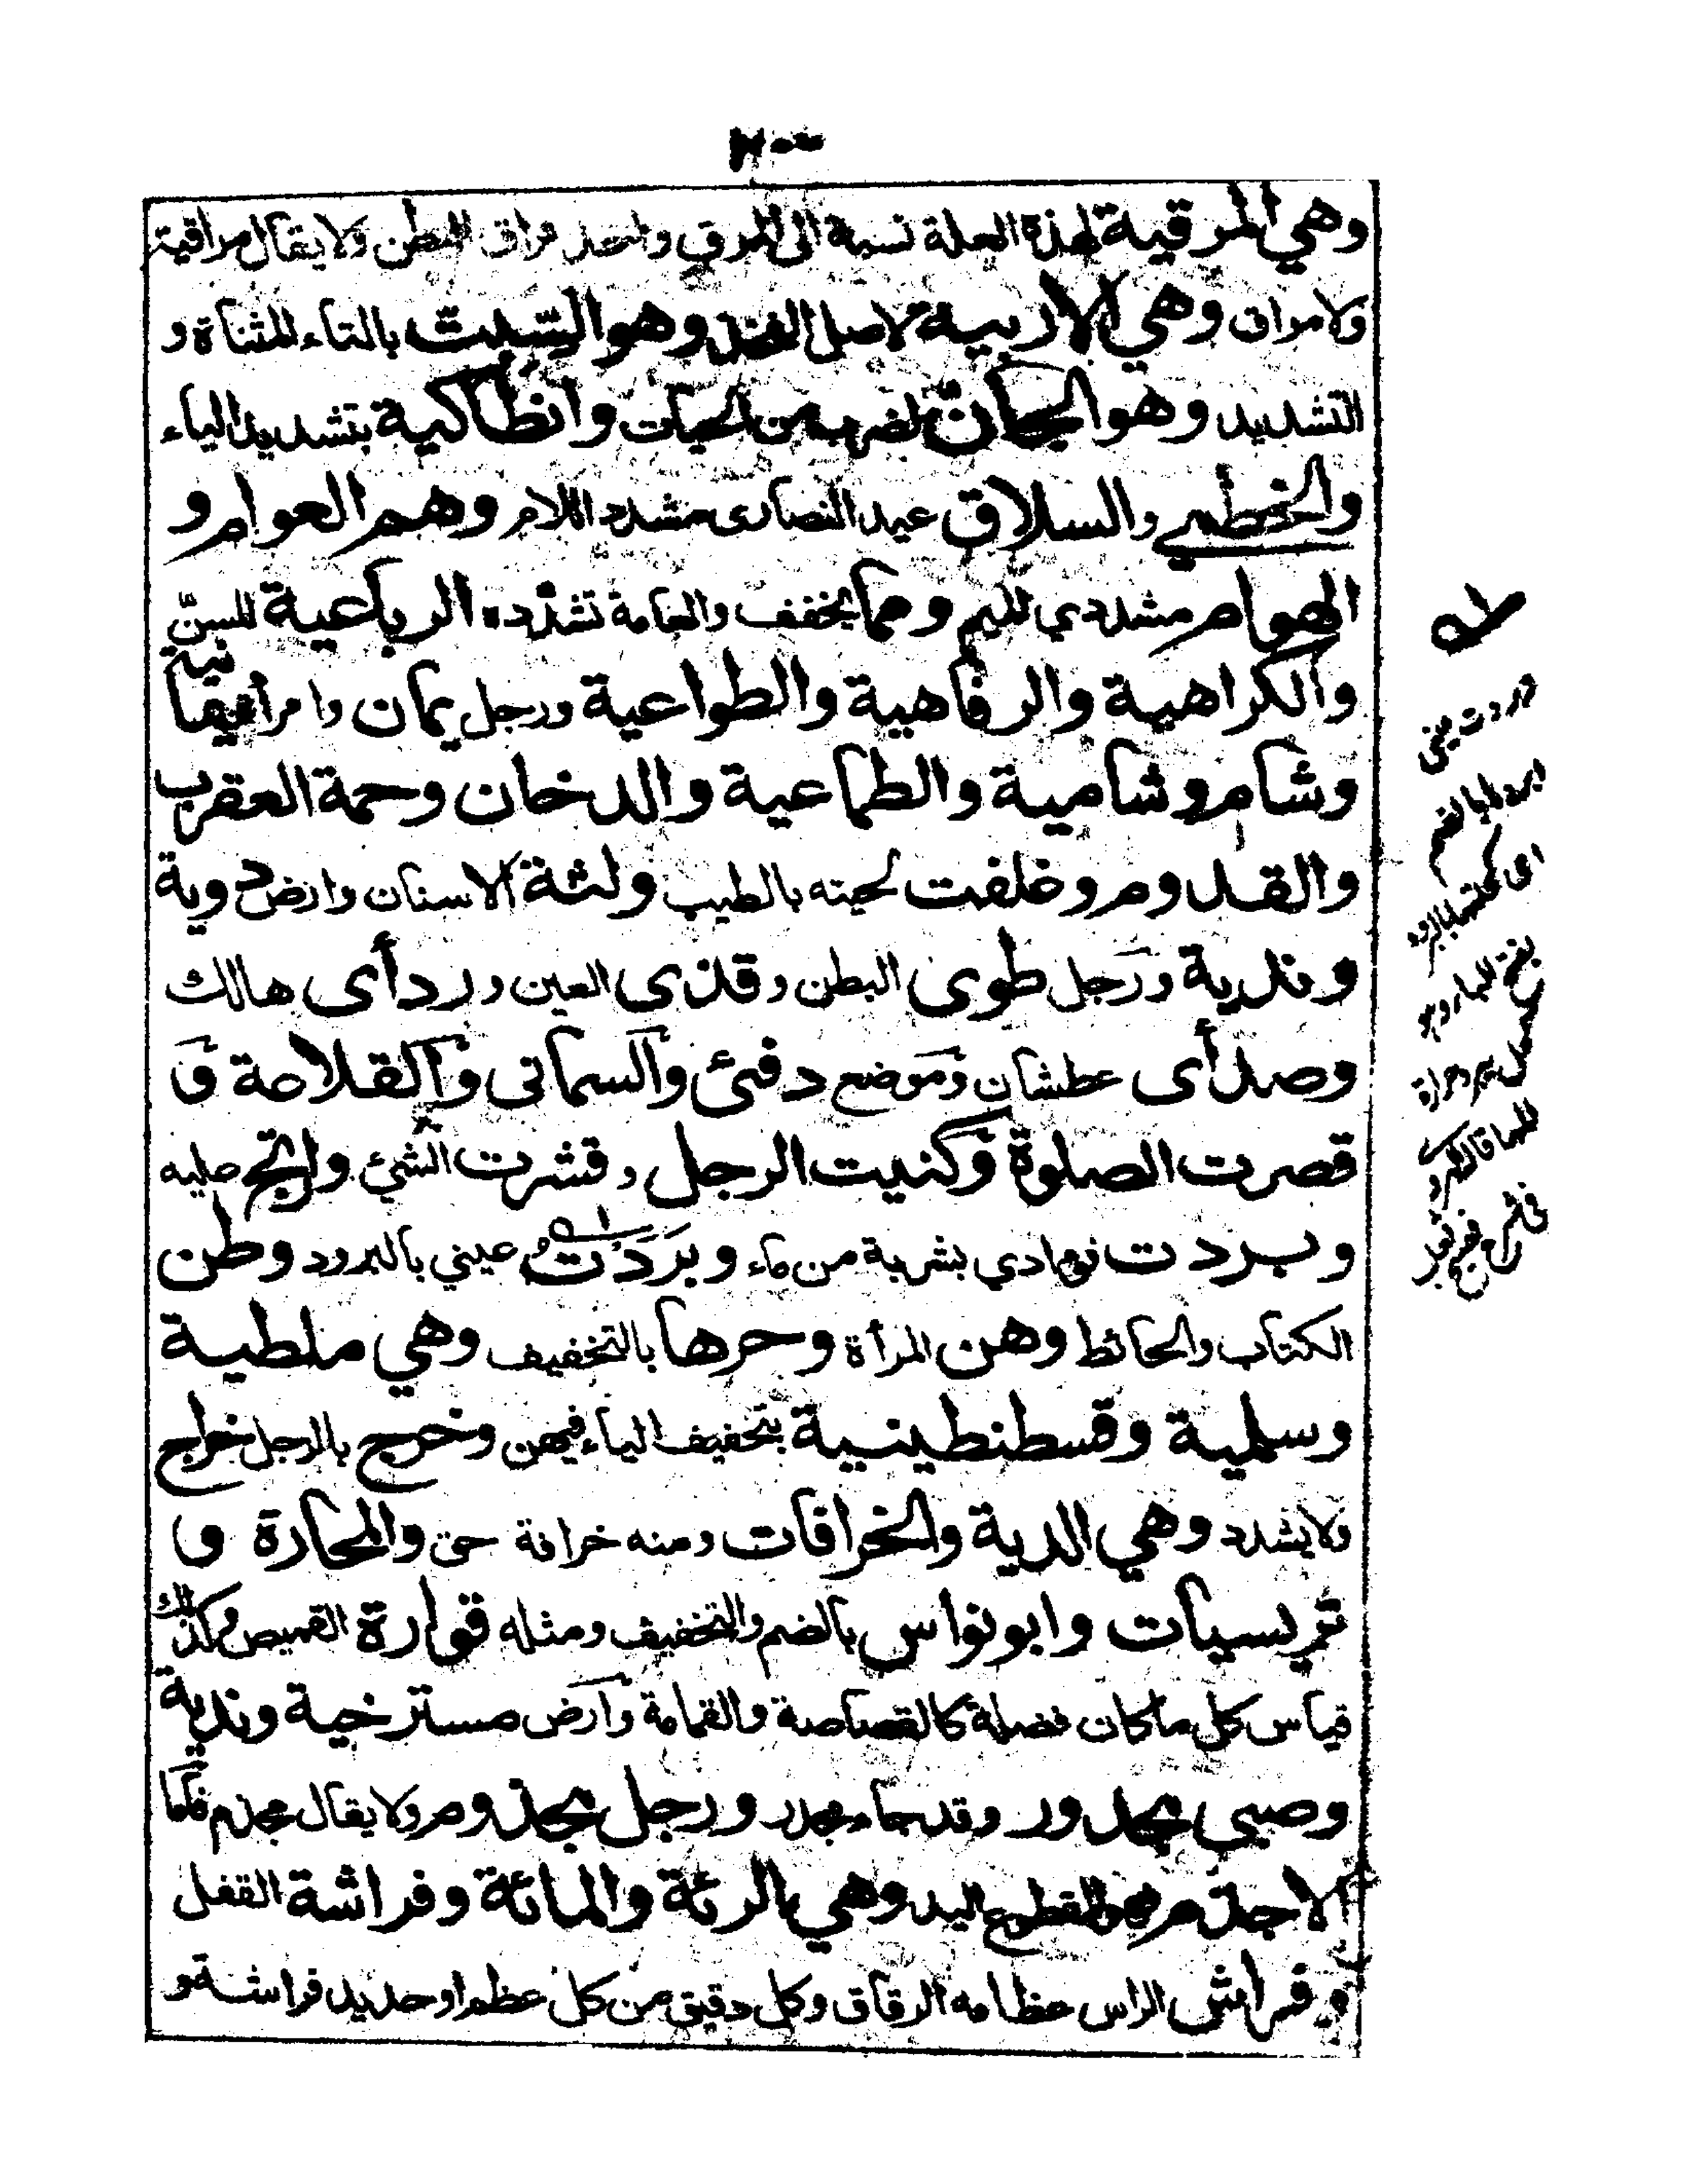 ٢٠٠
وهي المرقية لهذه العلة نسبة الى المرق واحد مراق البطن ولا يقال مراقية
ولا مراق وهي الاربية لاصل الفخذ وهو الشبث بالتاء المثناة و
التشديد وهو الجان لضرب من الحيات وانطاكية بتشديد الياء
والخطمي والسلاق عيد النصارى مشدد اللام وهم العوام و
الهوام مشددي الميم ومما يخفف والعامة تشدده الرباعية للسنّ
والكراهية والرفاهية والطواعية ورجل يمان وامرأة يمانية
وشام وشامية والطماعية والدخان وحمة العقرب
والقدوم وغلفت لحيته بالطيب ولثة الاسنان وارض دوية
وندية ورجل طوى البطن وقذى العين وردأى هالك
وصدأى عطشان وموضع دفئ والسمانى والقلاعة و
قصرت الصلوة وكنيت الرجل وقشرت الشئ وارتج عليه
وبردت فوادي بشربة من ماء وبَرَدْتُ عيني بالبرود وطن
الكتاب والحائط وهن المرأة وحرها بالتخفيف وهي ملطية
وسلمية وقسطنطينية بتخفيف الياء فيهن وخرج بالرجل خراج
ولا يشدد وهي الدية والخرافات ومنه خرافة حق والمحارة و
تريسيات وابو نواس بالضم والتخفيف ومثله قوارة القميص وكذلك
قياس كل ما كان فضلة كالقصاصة والقمامة وارض مسترخية وندية
وصبي مجدور وقد جاء مجدر ورجل مجذوم ولا يقال مجذم فاما
الاجذم فهو المقطوع اليد وهي الرئة والمائة وفراشة القفل
وفراش الراس عظامه الرقاق وكل دقيق من كل عظم او حديد فراشة و
بردت عيني